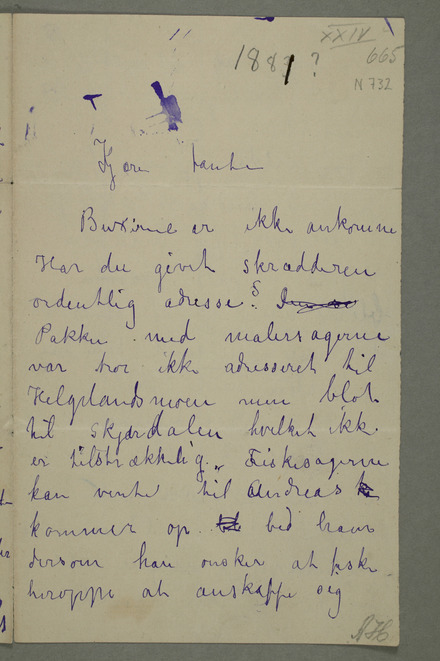 XXIV
1881?
665
N 732
Kjære tante
Buxerne er ikke ankomne
Har du givet skrædderen
ordentlig adresse?
Pakken med malersagerne
var troe ikke adresseret til
Helgelandsmoen men blot
til Skjærdalen hvilket ikke
er tilstrækkelig. Fiskesagerne
kan vente til Andreas
kommer op. bed ham
dersom han ønsker at fiske
heroppe at anskaffe sig